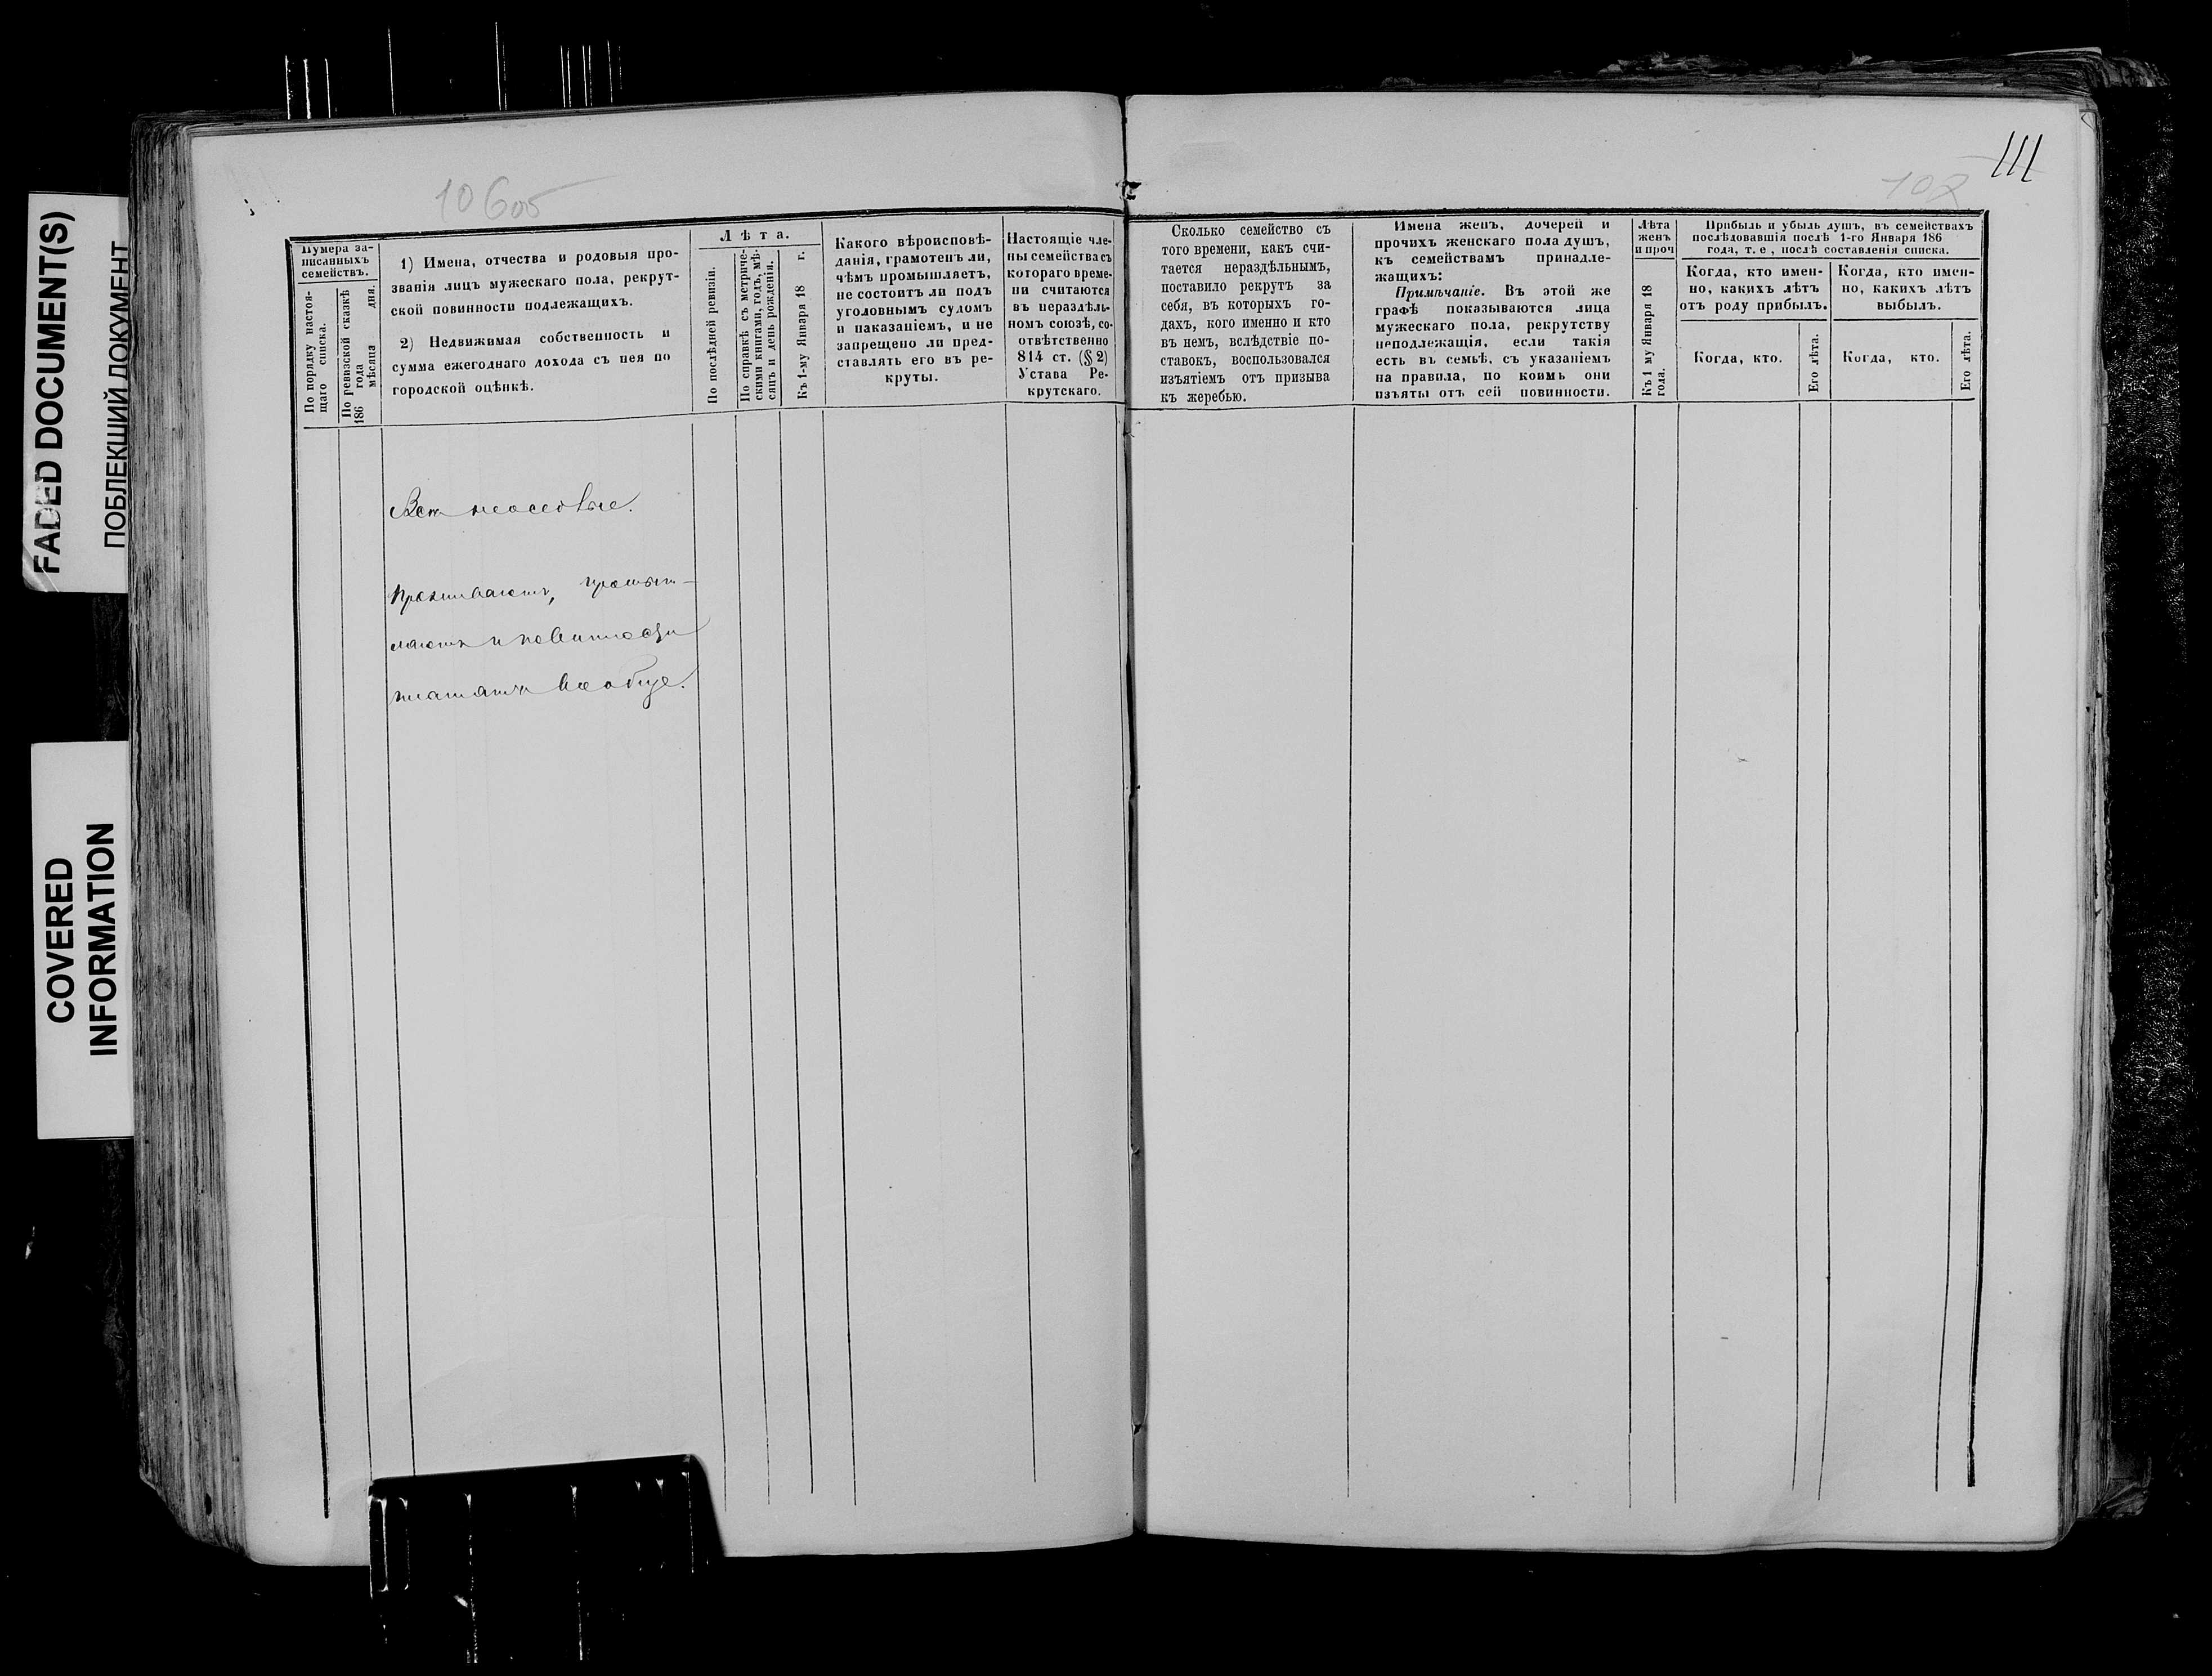 FADED DOCUMENT(S)
ПОБЛЕКШИЙ ДОКУМЕНТ
COVERED
INFORMATION
111
102
Нумера за-
писанныхъ
семействъ.
По порядку настоя-
щаго списка.
По ревизской сказкѣ
186 года
мѣсяца дня.
1) Имена, отчества и родовыя про-
званія лицъ мужескаго пола, рекрут-
ской повинности подлежащихъ.
2) Недвижимая собственность и
сумма ежегоднаго дохода съ нея по
городской оцѣнкѣ.
Лѣта.
По послѣдней ревизіи.
По справкѣ съ метриче-
скими книгами, годъ, мѣ-
сяцъ и день рожденія.
Къ 1-му Января 18 г.
Какого вѣроисповѣ-
данія, грамотенъ ли,
чѣмъ промышляетъ,
не состоитъ ли подъ
уголовнымъ судомъ
и наказаніемъ, и не
запрещено ли пред-
ставлять его въ ре-
круты.
Настоящіе чле-
ны семейства съ
котораго време-
ни считаются
въ нераздѣль-
номъ союзѣ, со-
отвѣтственно
814 ст. (§ 2)
Устава Ре-
крутскаго.
Сколько семейство съ
того времени, какъ счи-
тается нераздѣльнымъ,
поставило рекрутъ за
себя, въ которыхъ го-
дахъ, кого именно и кто
въ немъ, вслѣдствіе по-
ставокъ, воспользовался
изъятіемъ отъ призыва
къ жеребью.
Имена женъ, дочерей и
прочихъ женскаго пола душъ,
къ семействамъ принадле-
жащихъ:
Примѣчаніе. Въ этой же
графѣ показываются лица
мужескаго пола, рекрутству
неподлежащія, если такія
есть въ семьѣ, съ указаніемъ
на правила, по коимъ они
изъяты отъ сей повинности.
Лѣта
женъ
и проч
Къ 1 му Января 18
года.
Прибыль и убыль душъ, въ семействахъ
послѣдовавшія послѣ 1-го Января 186
года, т. е, послѣ составленія списка.
Когда, кто имен-
но, какихъ лѣтъ
отъ роду прибылъ.
Когда, кто.
Его лѣта.
Когда, кто имен-
но, какихъ лѣтъ
выбылъ.
Когда, кто.
Его лѣта.
Всѣ неоседлые.
Проживаютъ, промыш-
ляютъ и повинности
платятъ вообще.